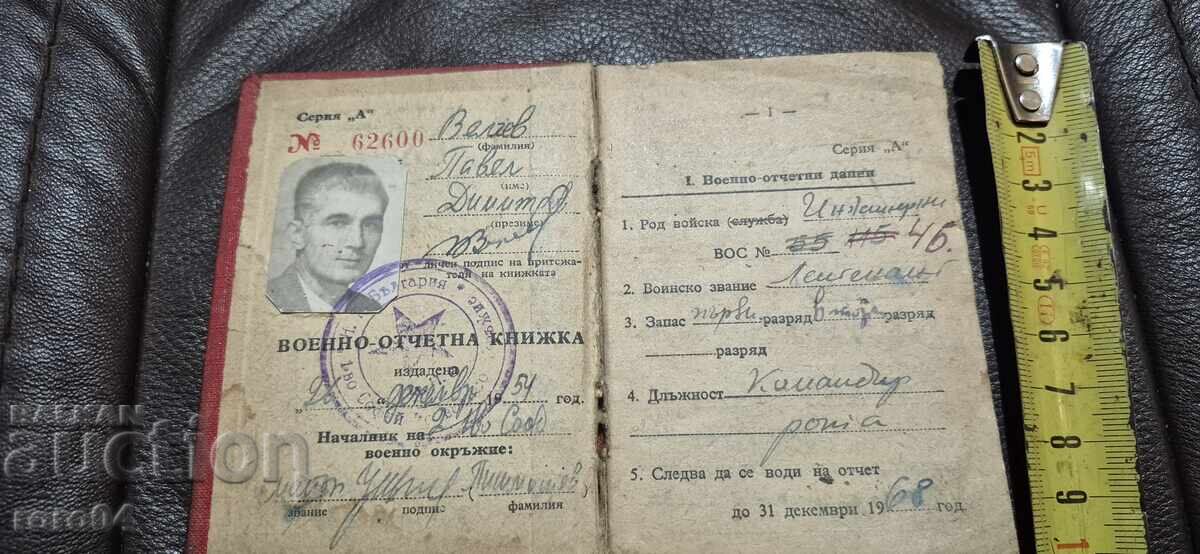 Серия „А"
№ 62600
Велчев
(фамилия)
Павел
(име)
Димитров
(презиме)
личен подпис на притежа-
теля на книжката
България
ВОЕННО-ОТЧЕТНА КНИЖКА
издадена
1954 год.
Началник на
военно окръжие:
звание подпис фамилия
— 1 —
Серия „А"
I. Военно-отчетни данни
1. Род войска (служба) Инженерни
ВОС № 55 115 46.
2. Воинско звание Лейтенант
3. Запас първи разряд втори разряд
разряд
4. Длъжност Командир
рота
5. Следва да се води на отчет
до 31 декември 1968 год.
BALKAN
auction
roto84
2
3
4
5
6
7
8
9
1
5m